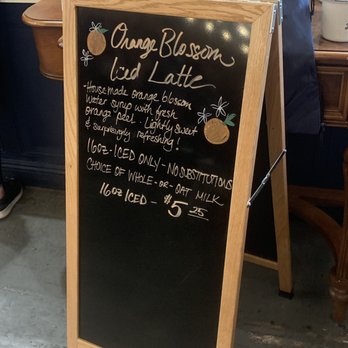 Orange Blossom
Iced Latte
- House made orange blossom
water syrup with fresh
orange peel. Lightly sweet
& surprisingly refreshing!
16oz · ICED ONLY - NO SUBSTITUTIONS
CHOICE OF WHOLE -OR- OAT MILK
16oz ICED - $5.25